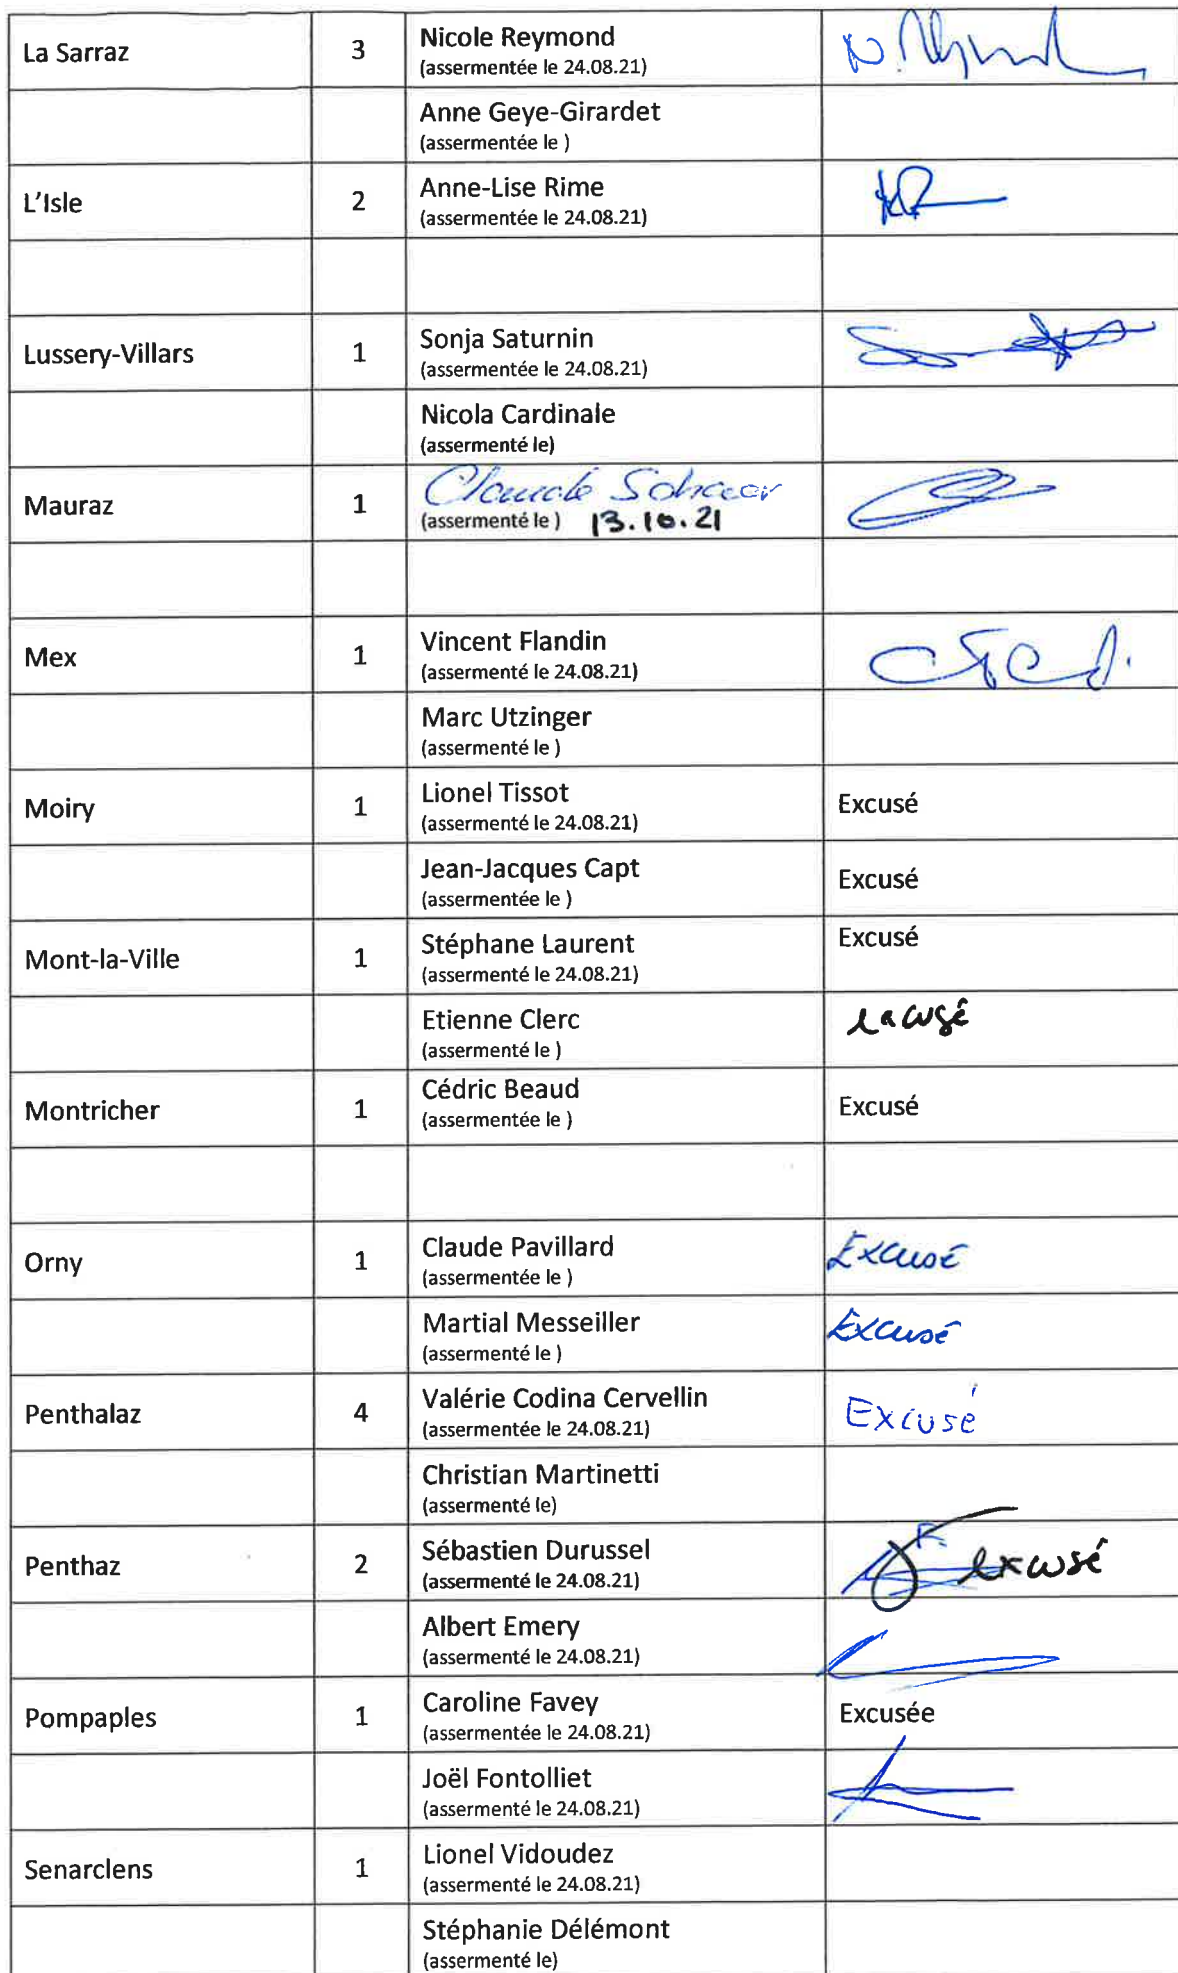 La Sarraz 3 Nicole Reymond N. Reymond
(assermentée le 24.08.21)
Anne Geye-Girardet
(assermentée le )
L'Isle 2 Anne-Lise Rime
(assermentée le 24.08.21)
Lussery-Villars 1 Sonja Saturnin
(assermentée le 24.08.21)
Nicola Cardinale
(assermenté le)
Mauraz 1 Claude
(assermenté le ) 13.10.21
Mex 1 Vincent Flandin
(assermenté le 24.08.21)
Marc Utzinger
(assermenté le )
Moiry 1 Lionel Tissot Excusé
(assermenté le 24.08.21)
Jean-Jacques Capt Excusé
(assermentée le )
Mont-la-Ville 1 Stéphane Laurent Excusé
(assermenté le 24.08.21)
Etienne Clerc excusé
(assermenté le )
Montricher 1 Cédric Beaud Excusé
(assermentée le )
Orny 1 Claude Pavillard Excusé
(assermentée le )
Martial Messeiller Excusé
(assermenté le )
Penthalaz 4 Valérie Codina Cervellin Excusé
(assermentée le 24.08.21)
Christian Martinetti
(assermenté le)
Penthaz 2 Sébastien Durussel excusé
(assermenté le 24.08.21)
Albert Emery
(assermenté le 24.08.21)
Pompaples 1 Caroline Favey Excusée
(assermentée le 24.08.21)
Joël Fontolliet
(assermenté le 24.08.21)
Senarclens 1 Lionel Vidoudez
(assermenté le 24.08.21)
Stéphanie Délémont
(assermenté le)